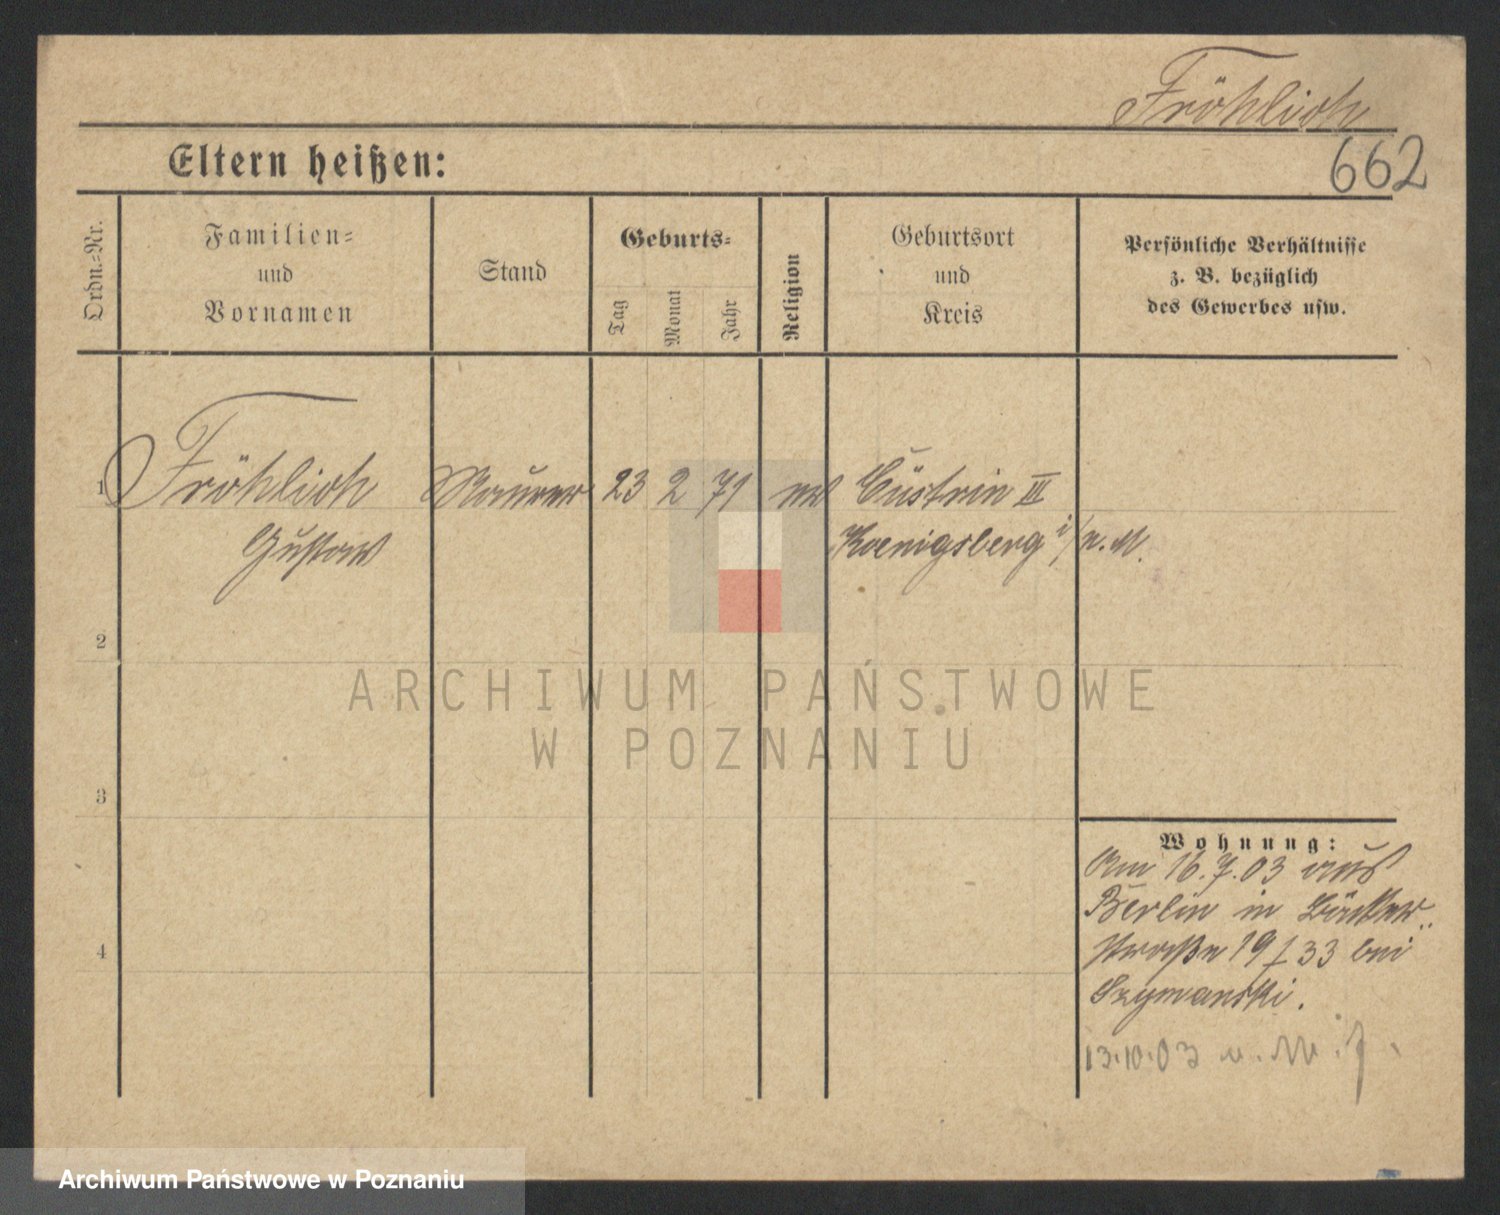 Fröhlich
Eltern heißen:
662
Ordn.-Nr.
Familien-
und
Vornamen
Stand
Geburts-
Tag
Monat
Jahr
Religion
Geburtsort
und
Kreis
Persönliche Verhältnisse
z. B. bezüglich
des Gewerbes usw.
1 Fröhlich Maurer 23 2 71 ev Cüstrin III
Gustav Koenigsberg i/n. M.
2
ARCHIWUM PAŃSTWOWE
W POZNANIU
3
Wohnung:
Am 16.7.03 aus
Berlin in Bäcker-
straße 19 / 33 bei
4
Szymanski.
13.10.03
Archiwum Państwowe w Poznaniu